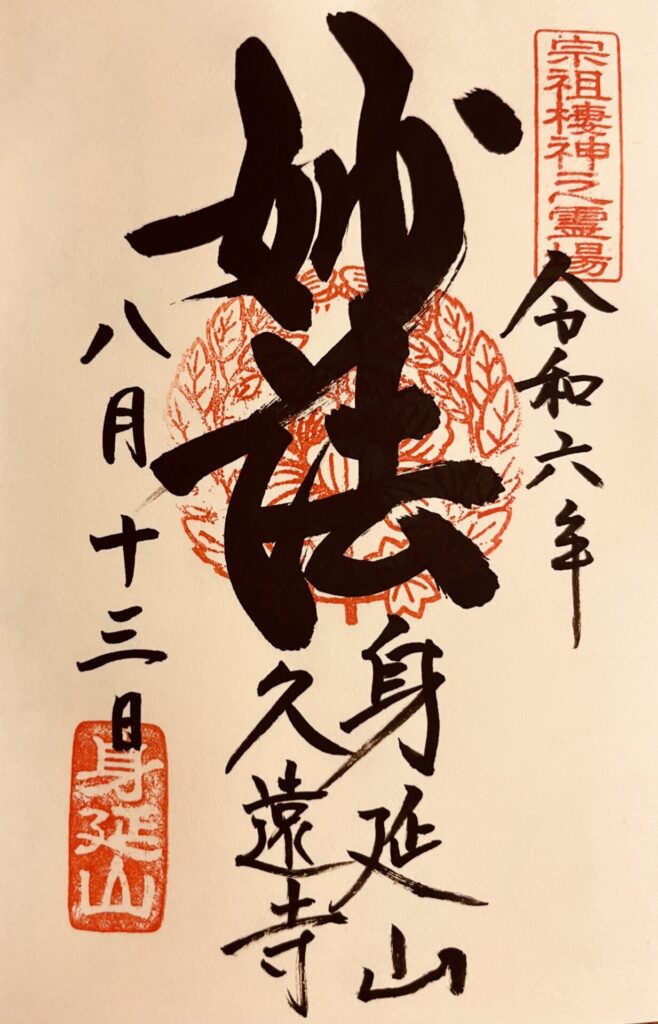 宗祖棲神之霊場
令和六年
妙法
身延山
久遠寺
八月十三日
身延山